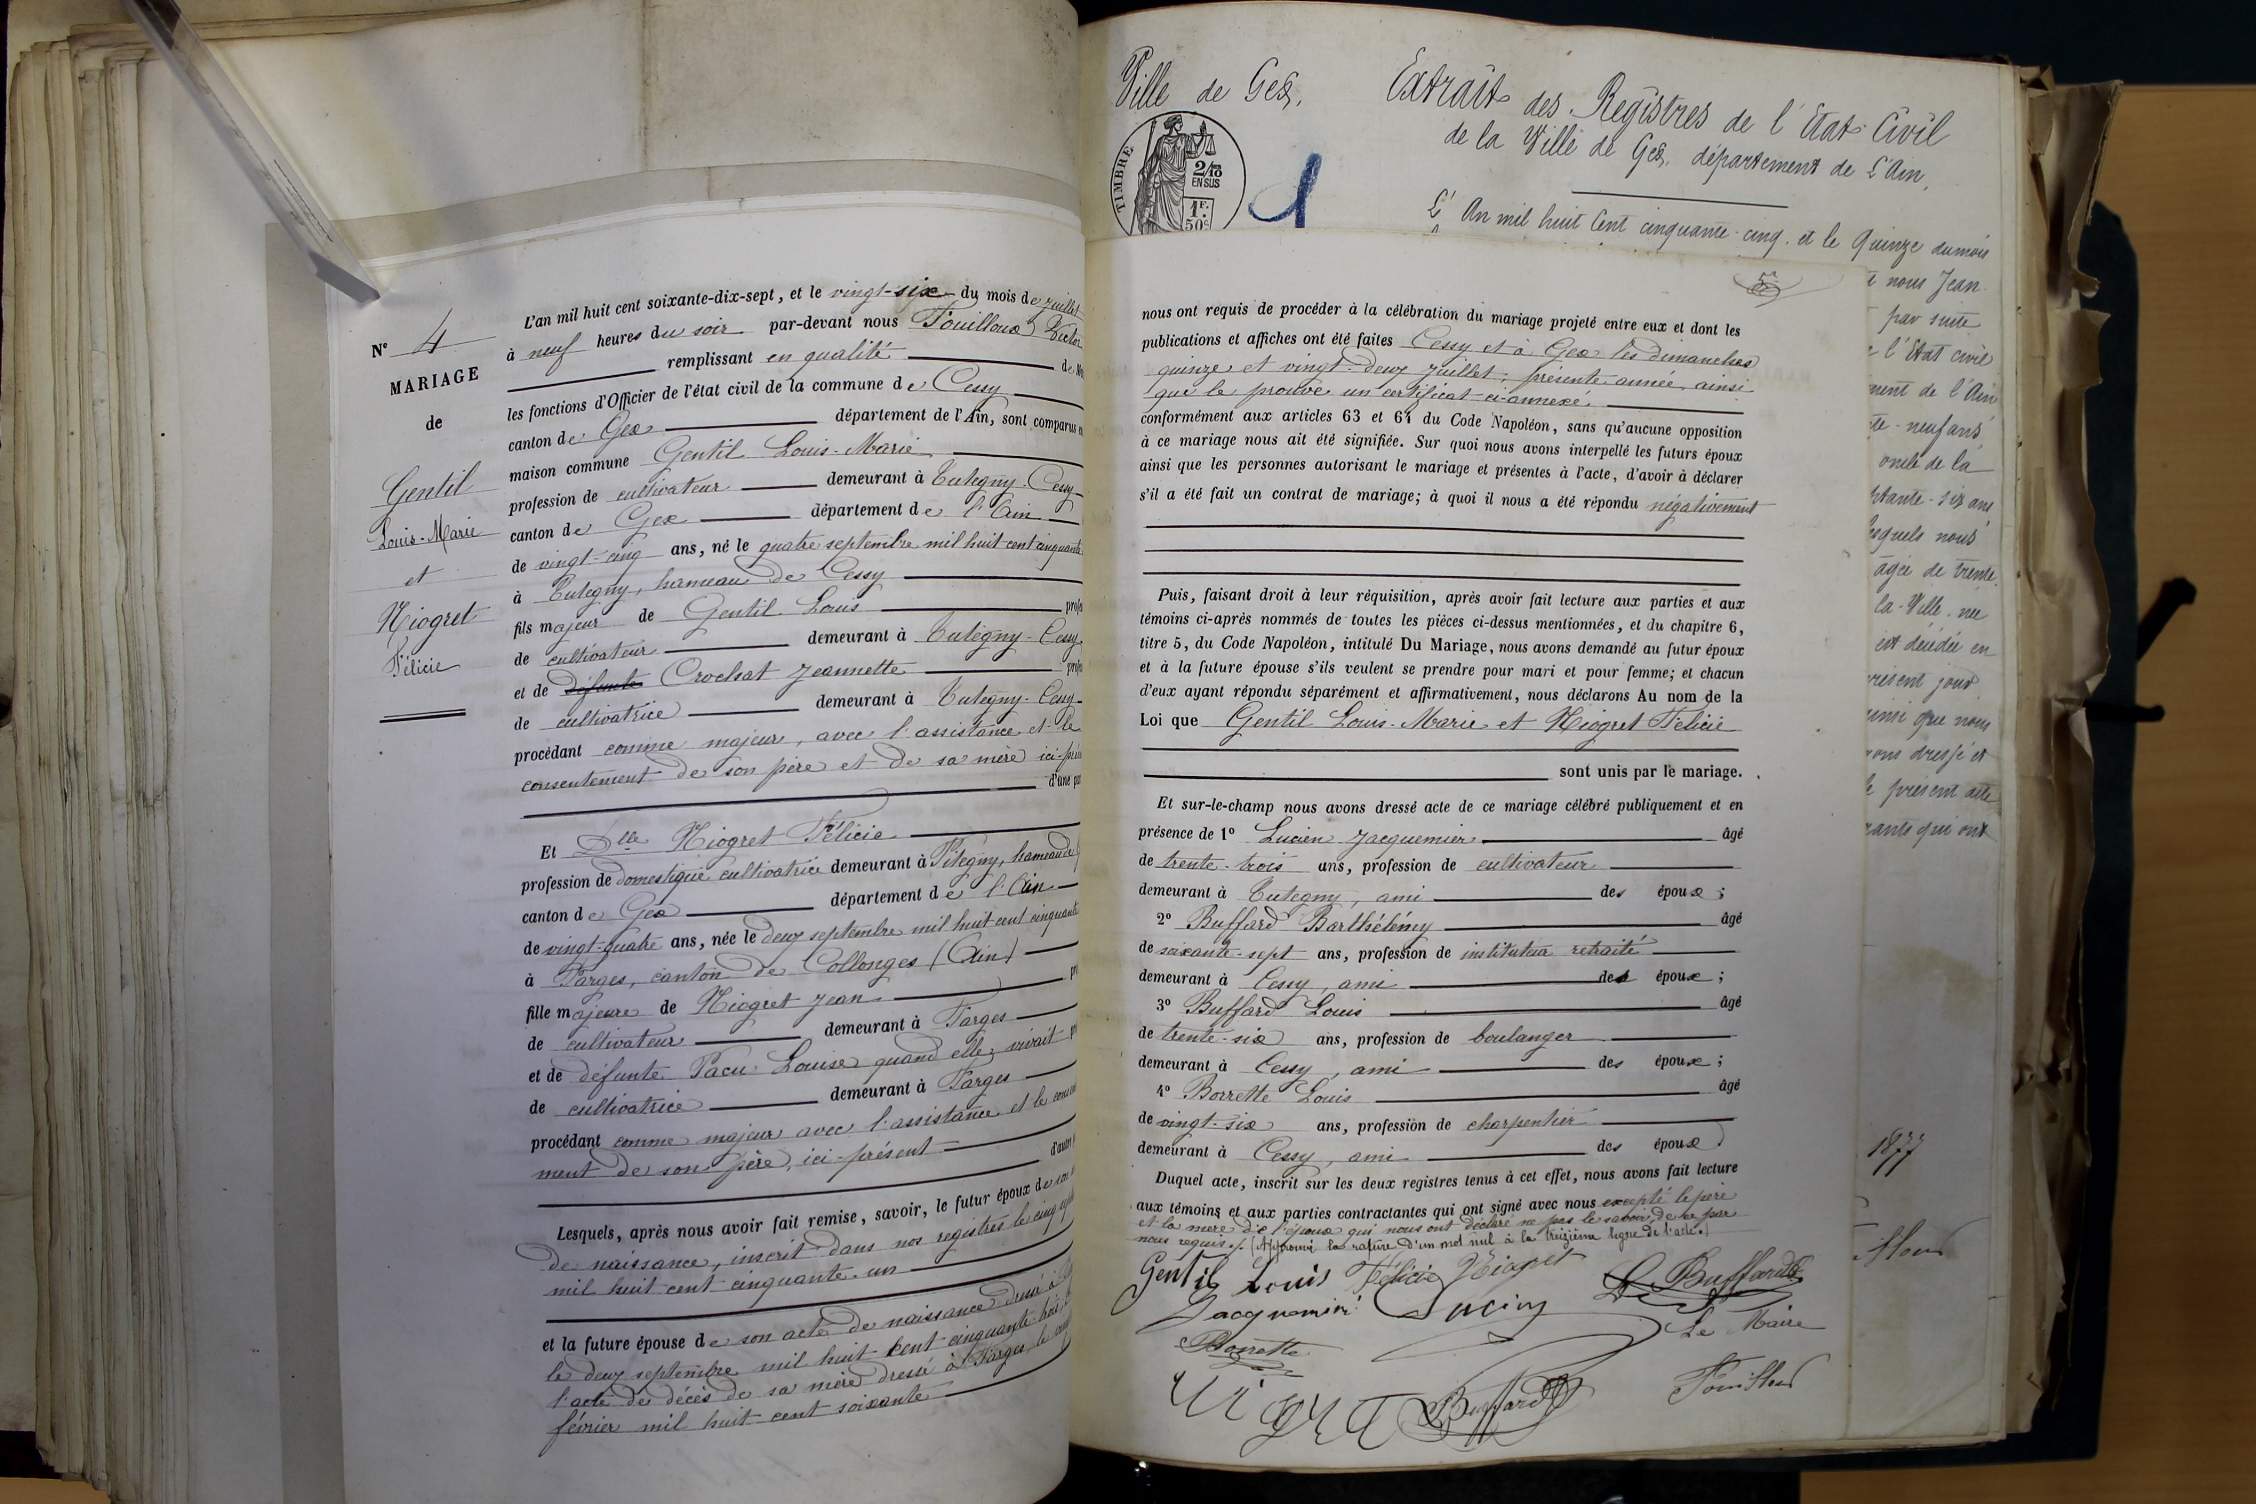 N° 4
MARIAGE
de
Gentil
Louis-Marie
et
Niogret
Félicie
L'an mil huit cent soixante-dix-sept, et le vingt-six du mois de juillet
à neuf heures du soir par-devant nous Fouilloux Victor
remplissant en qualité de
les fonctions d'Officier de l'état civil de la commune de Cessy
canton de Gex département de l'Ain, sont comparus en
maison commune Gentil Louis-Marie
profession de cultivateur demeurant à Tutegny-Cessy
canton de Gex département de l'Ain
de vingt-cinq ans, né le quatre septembre mil huit cent cinquante
à Tutegny, hameau de Cessy
fils majeur de Gentil Louis profes
de cultivateur demeurant à Tutegny-Cessy
et de défunte Crochat Jeannette profes
de cultivatrice demeurant à Tutegny-Cessy
procédant comme majeur, avec l'assistance et le
consentement de son père et de sa mère ici-prés
d'une part
Et Dlle Niogret Félicie
profession de domestique cultivatrice demeurant à Pitegny, hameau de
canton de Gex département de l'Ain
de vingt-quatre ans, née le deux septembre mil huit cent cinquante
à Farges, canton de Collonges (Ain)
fille majeure de Niogret Jean pr
de cultivateur demeurant à Farges
et de défunte Pacu Louise quand elle vivait pr
de cultivatrice demeurant à Farges
procédant comme majeur avec l'assistance et le consen
ment de son père, ici-présent
d'autre
Lesquels, après nous avoir fait remise, savoir, le futur époux de son
de naissance, inscrit dans nos registres le cinq
mil huit cent cinquante-un
et la future épouse de son acte de naissance dressé à
le deux septembre mil huit cent cinquante-trois
l'acte de décès de sa mère dressé à Farges le
février mil huit cent soixante
Ville de Gex,
Extrait des Registres de l'Etat Civil
de la Ville de Gex, département de L'Ain,
TIMBRE
2/10
EN SUS
1F.
50c
L'An mil huit Cent cinquante-cinq et le Quinze du mois
5
nous ont requis de procéder à la célébration du mariage projeté entre eux et dont les
publications et affiches ont été faites Cessy et à Gex les dimanches
quinze et vingt-deux juillet, présente année, ainsi
que le prouve un certificat ci-annexé.
conformément aux articles 63 et 64 du Code Napoléon, sans qu'aucune opposition
à ce mariage nous ait été signifiée. Sur quoi nous avons interpellé les futurs époux
ainsi que les personnes autorisant le mariage et présentes à l'acte, d'avoir à déclarer
s'il a été fait un contrat de mariage; à quoi il nous a été répondu négativement
Puis, faisant droit à leur réquisition, après avoir fait lecture aux parties et aux
témoins ci-après nommés de toutes les pièces ci-dessus mentionnées, et du chapitre 6,
titre 5, du Code Napoléon, intitulé Du Mariage, nous avons demandé au futur époux
et à la future épouse s'ils veulent se prendre pour mari et pour femme; et chacun
d'eux ayant répondu séparément et affirmativement, nous déclarons Au nom de la
Loi que Gentil Louis-Marie et Niogret Félicie
sont unis par le mariage.
Et sur-le-champ nous avons dressé acte de ce mariage célébré publiquement et en
présence de 1° Lucien Jacquemier âgé
de trente-trois ans, profession de cultivateur
demeurant à Tutegny, ami des époux;
2° Buffard Barthélémy âgé
de soixante-sept ans, profession de instituteur retraité
demeurant à Cessy, ami des époux;
3° Buffard Louis âgé
de trente-six ans, profession de boulanger
demeurant à Cessy, ami des époux;
4° Borrette Louis âgé
de vingt-six ans, profession de charpentier
demeurant à Cessy, ami des époux
Duquel acte, inscrit sur les deux registres tenus à cet effet, nous avons fait lecture
aux témoins et aux parties contractantes qui ont signé avec nous excepté le père
et la mère de l'époux qui nous ont déclaré ne pas le savoir, de ce par
nous requis./. (Approuvé la rature d'un mot nul à la treizième ligne de l'acte.)
Gentil Louis Félicie Niogret Buffard
Jacquemier Lucien
Le Maire
Borrette
Buffard
Fouilloux
nous Jean
par suite
l'Etat civil
ment de l'Ain
te-neuf ans
oncle de la
ptante-six ans
esquels nous
âgée de trente
la Ville née
est décédée en
présent jour
ainsi que nous
vons dressé et
le présent acte
rants qui ont
1877